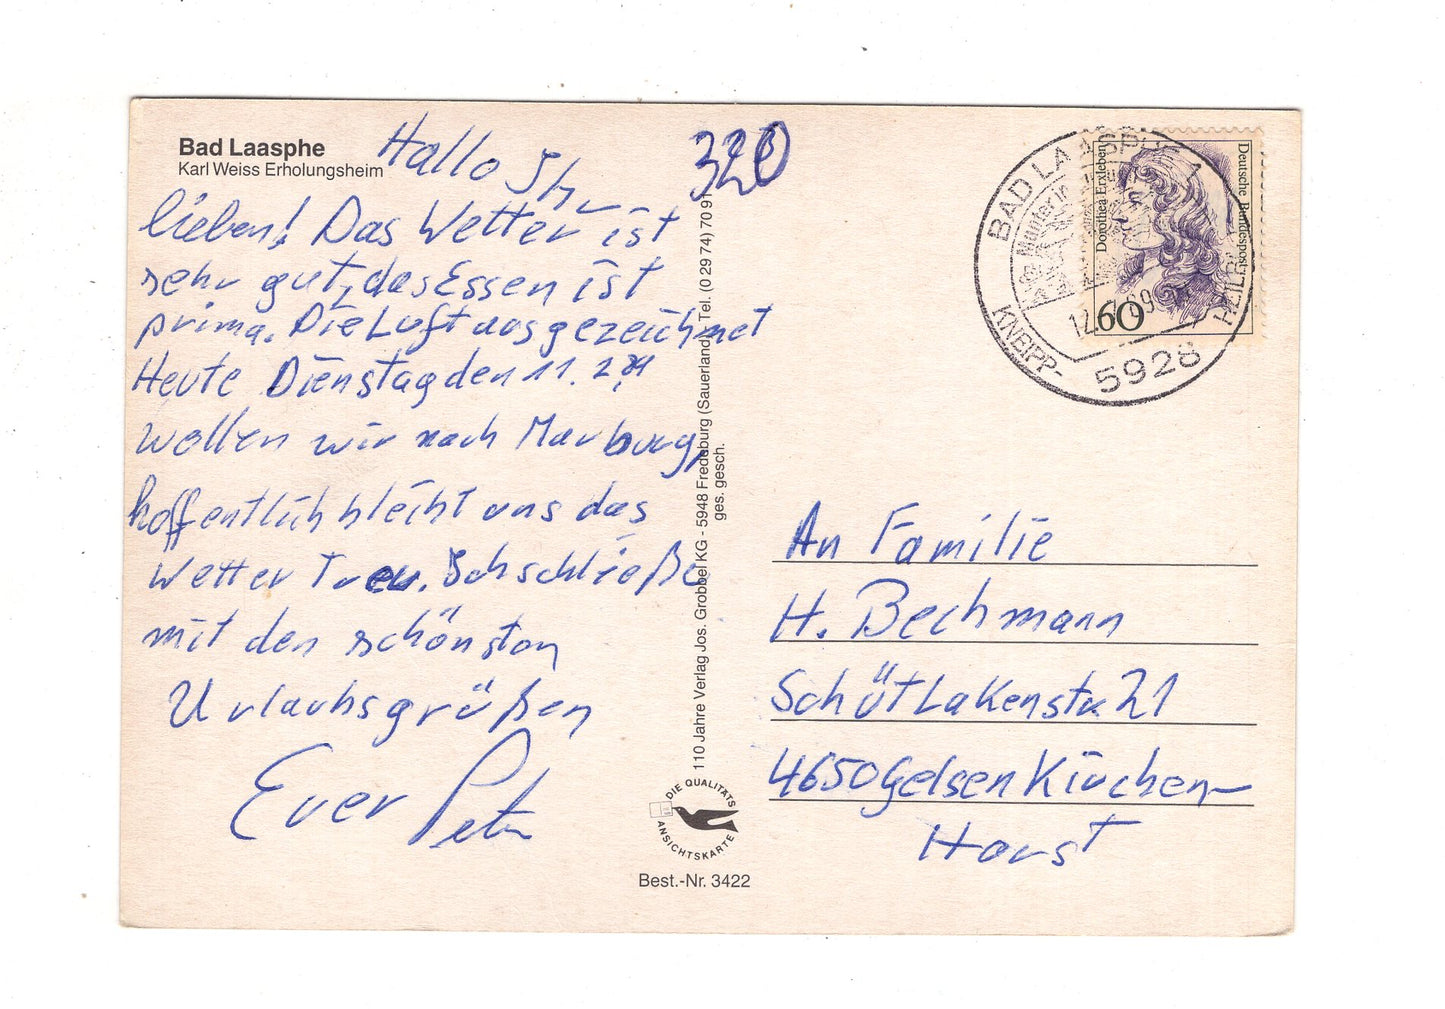 Bad Laasphe
Karl Weiss Erholungsheim
320
Hallo Ihr
lieben! Das Wetter ist
sehr gut, das Essen ist
prima. Die Luft ausgezeichnet
Heute Dienstag den 11. 2.
wollen wir nach Marburg,
hoffentlich bleibt uns das
Wetter Treu. Ich schließe
mit den schönsten
Urlaubsgrüßen
Euer Peter
110 Jahre Verlag Jos. Grobbel KG - 5948 Fredeburg (Sauerland), Tel. (0 29 74) 70 91
ges. gesch.
DIE QUALITÄTS
ANSICHTSKARTE
Best.-Nr. 3422
BAD LAASPHE 1
KNEIPP-
5928
Deutsche Bundespost
Dorothea Erxleben
60
An Familie
H. Bechmann
Schütlakenstr. 21
4650 Gelsenkirchen-
Horst